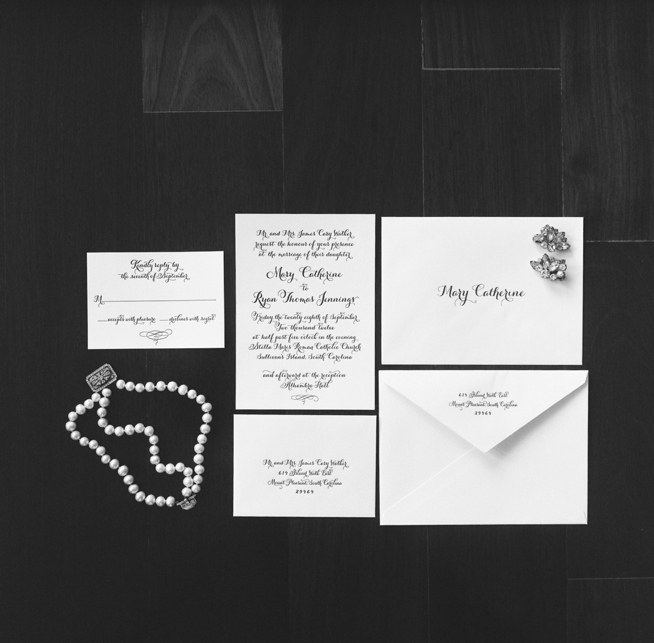 Kindly reply by
the seventh of September
M
accepts with pleasure declines with regret
Mr. and Mrs. James Cary Walker
request the honour of your presence
at the marriage of their daughter
Mary Catherine
to
Ryan Thomas Jennings
Friday the twenty eighth of September
Two thousand twelve
at half past five o'clock in the evening
Stella Maris Roman Catholic Church
Sullivan's Island, South Carolina
and afterward at the reception
Alhambra Hall
Mary Catherine
Mount Pleasant, South Carolina
29464
Mr. and Mrs. James Cary Walker
Mount Pleasant, South Carolina
29464